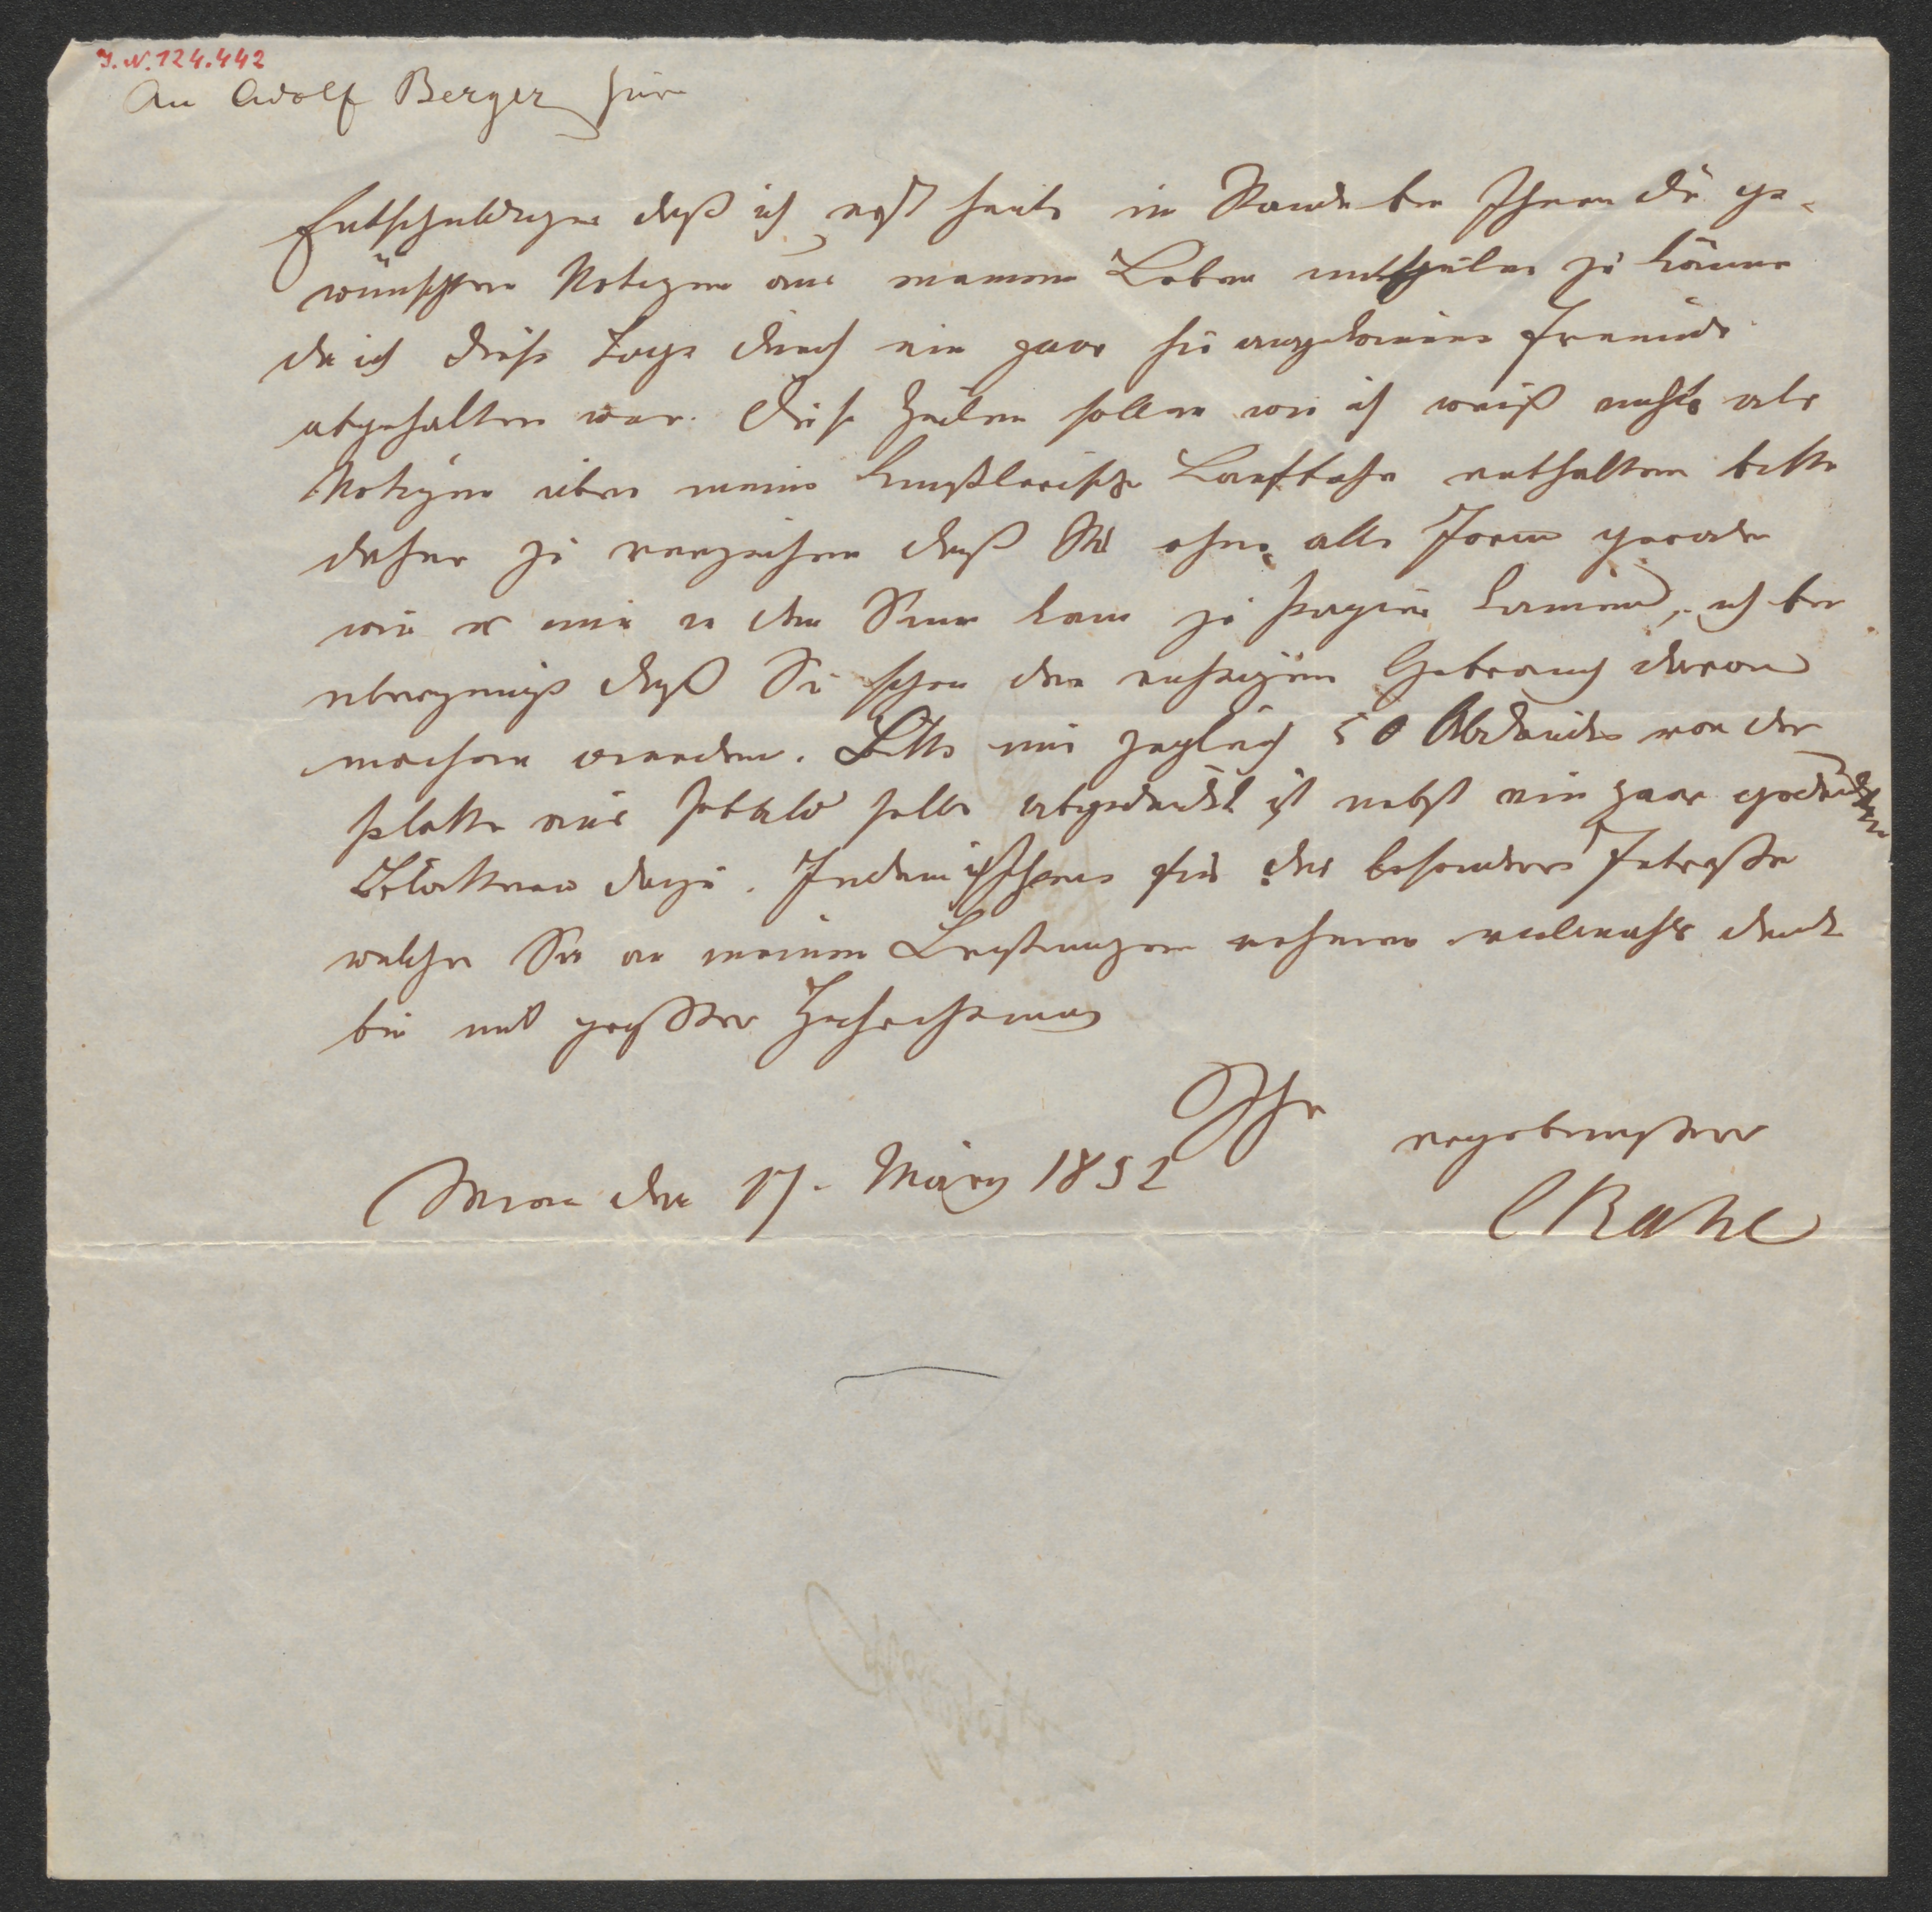 I. N. 124.442
An Adolf Berger hier
Entschuldigen daß ich erst heute im Stande bin Ihnen die ge-
wünschten Notizen aus meinem Leben mittheilen zu können
da ich diese Tage durch ein paar hier angekommene Freunde
abgehalten war. Diese Zeilen sollen wie ich weiß nichts als
Notizen über meine künstlerische Laufbahn enthalten bitte
daher zu verzeihen daß sie ohne alle Form gerade
wie es mir in den Sinn kam zu Papier kamen, ich bin
überzeugt daß Sie schon den richtigen Gebrauch davon
machen werden. Bitte mir zugleich 50 Abdrücke von der
Platte aus sobald selbe abgedruckt ist nebst ein paar gedruckten
Blättern dazu. Indem ich Ihnen für das besondere Interesse
welches Sie an meinen Leistungen nehmen vielmahls danke
bin mit größter Hochachtung
Ihr
ergebenster
Wien den 17. März 1852
C Rahl